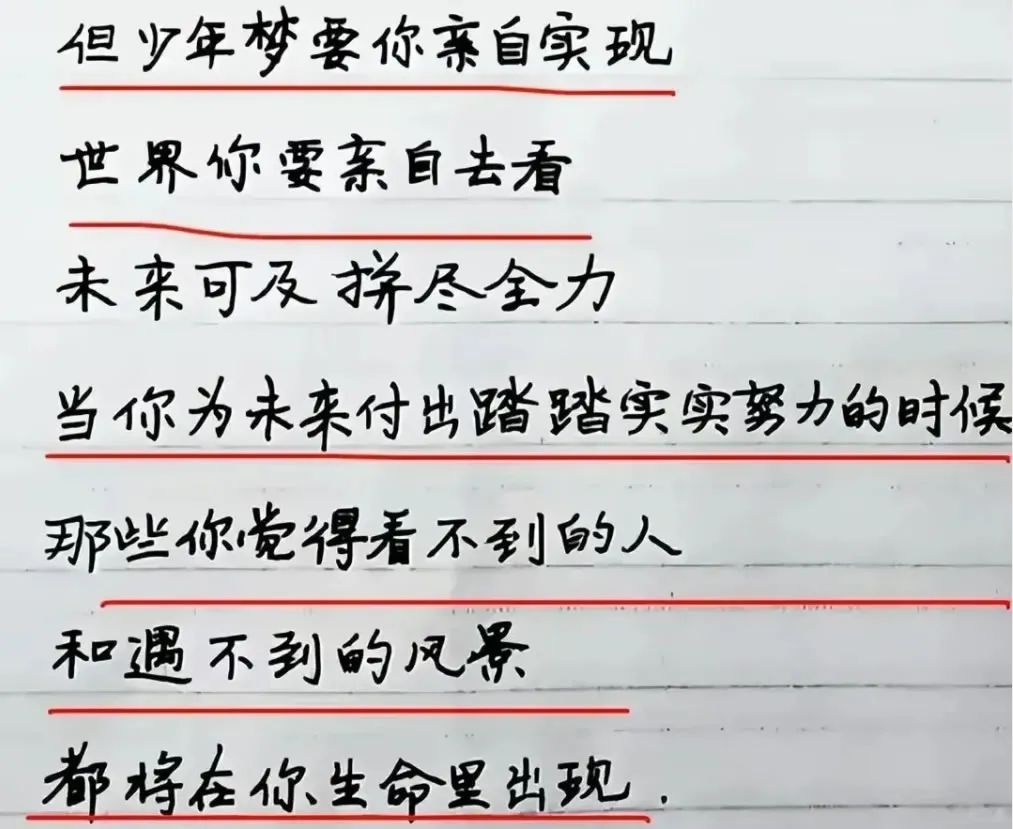 但少年梦要你亲自实现
世界你要亲自去看
未来可及 拼尽全力
当你为未来付出踏踏实实努力的时候
那些你觉得看不到的人
和遇不到的风景
都将在你生命里出现.